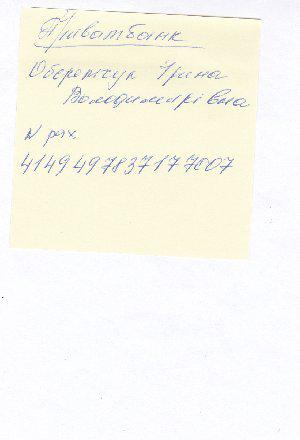 ПриватБанк
Оберемчук Ірина
Володимирівна
N рах.
4149497837177607